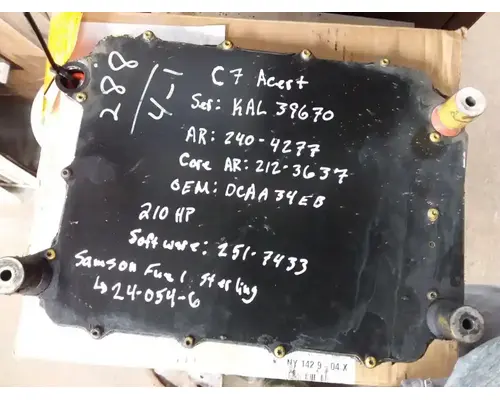 288
4-1
C7 Acert
Ser: KAL 39670
AR: 240-4277
Core AR: 212-3637
OEM: DCAA34EB
210 HP
Software: 251-7433
Samson Fuel Sterling
↳ 24-054-6
NY 142.9 - 04 X